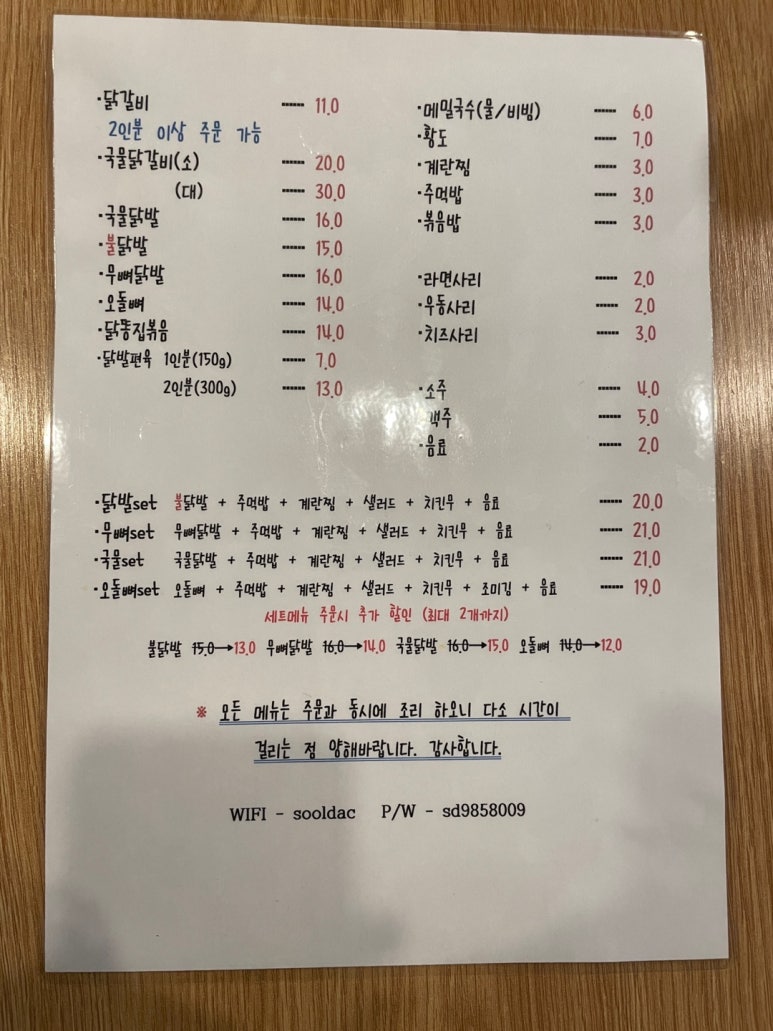 ·닭갈비 ---- 11.0
2인분 이상 주문 가능
·국물닭갈비(소) ---- 20.0
(대) ---- 30.0
·국물닭발 ---- 16.0
·불닭발 ---- 15.0
·무뼈닭발 ---- 16.0
·오돌뼈 ---- 14.0
·닭똥집볶음 ---- 14.0
·닭발편육 1인분(150g) ---- 7.0
2인분(300g) ---- 13.0
·메밀국수(물/비빔) ---- 6.0
·황도 ---- 7.0
·계란찜 ---- 3.0
·주먹밥 ---- 3.0
·볶음밥 ---- 3.0
·라면사리 ---- 2.0
·우동사리 ---- 2.0
·치즈사리 ---- 3.0
·소주 ---- 4.0
맥주 ---- 5.0
·음료 ---- 2.0
·닭발set 불닭발 + 주먹밥 + 계란찜 + 샐러드 + 치킨무 + 음료 ---- 20.0
·무뼈set 무뼈닭발 + 주먹밥 + 계란찜 + 샐러드 + 치킨무 + 음료 ---- 21.0
·국물set 국물닭발 + 주먹밥 + 계란찜 + 샐러드 + 치킨무 + 음료 ---- 21.0
·오돌뼈set 오돌뼈 + 주먹밥 + 계란찜 + 샐러드 + 치킨무 + 조미김 + 음료 ---- 19.0
세트메뉴 주문시 추가 할인 (최대 2개까지)
불닭발 15.0→13.0 무뼈닭발 16.0→14.0 국물닭발 16.0→15.0 오돌뼈 14.0→12.0
※ 모든 메뉴는 주문과 동시에 조리 하오니 다소 시간이
걸리는 점 양해바랍니다. 감사합니다.
WIFI - sooldac P/W - sd9858009